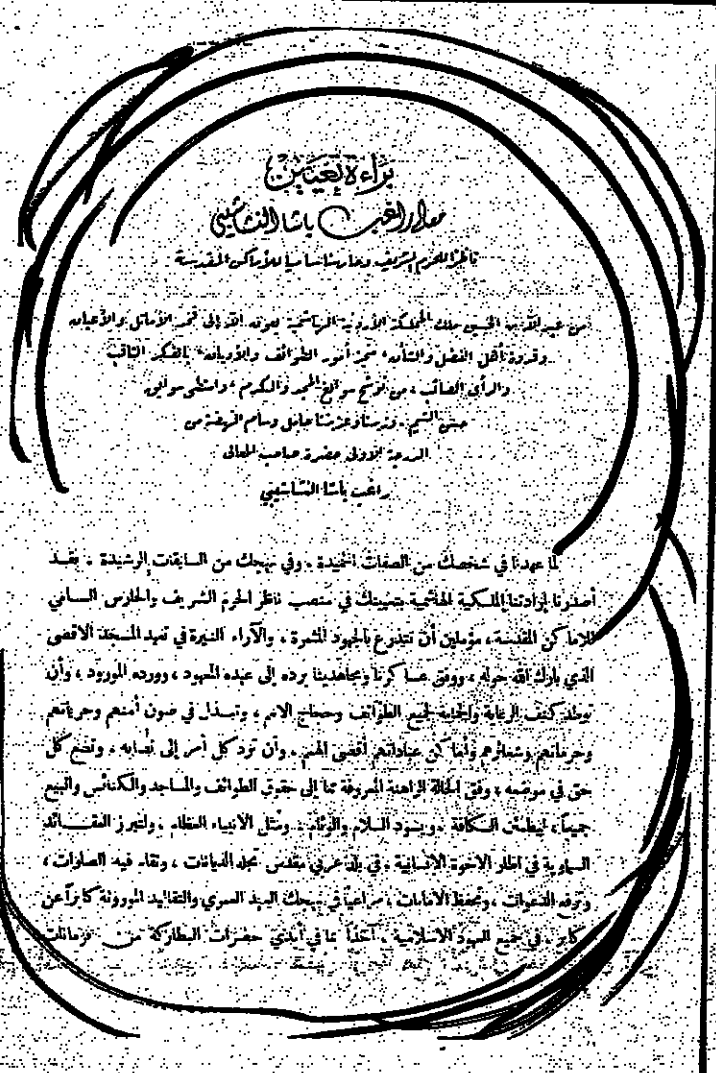 براءة تعيين
معالي راغب باشا النشاشيبي
ناظرا للحرم الشريف وحارسا ساميا للأماكن المقدسة
من عبد الله بن الحسين ملك المملكة الأردنية الهاشمية بعونه الله إلى فخر الأماثل والأعيان
وقدوة أهل الفضل والشأن، أمور الطوائف والأديان، بالفكر الثاقب
والرأي الصائب، من توشح المجد والكرم، وامتطى
الشيم. وزيرنا وعزيزنا حامل وسام النهضة من
الدرجة الأولى حضرة صاحب المعالي
راغب باشا النشاشيبي
لما عهدنا في شخصك من الصفات الحميدة. وفي نهجك من السابقات الرشيدة. فقد
أصدرنا إرادتنا الملكية الهاشمية بتعيينك في منصب ناظر الحرم الشريف والحارس السامي
للاماكن المقدسة، مؤملين أن تتذرع بالجهود المثمرة، والآراء النيرة في تعهد المسجد الاقصى
الذي بارك الله حوله، ووفق عساكرنا ومجاهدينا برده إلى عهده المعهود، وورده المورود، وأن
توطد كنف الرعاية والحماية لجميع الطوائف وحجاج الامم، وتبذل في صون أمنهم وحرياتهم
وحرماتهم وشعائرهم وأماكن عباداتهم أقصى الهمم. وأن ترد كل أمر إلى نصابه، وتضع كل
حق في موضعه، وفق الحالة الراهنة المعروفة منا إلى حقوق الطوائف والمساجد والكنائس والبيع
جميعاً، ليطمئن الكافة. ويسود السلام والوئام. ومثل الانبياء العظام. ولتبرز العقائد
السماوية في اطار الاخوة الانسانية. في بلد عربي مقدس تمجد الديانات، وتقام فيه الصلوات،
وترفع الدعوات، وتحفظ الامانات، مراعياً في نهجك العهد العمري والتقاليد الموروثة كابراً عن
كابر. في جميع العهود الاسلامية. آخذاً بما في أيدي حضرات البطاركة من فرمانات